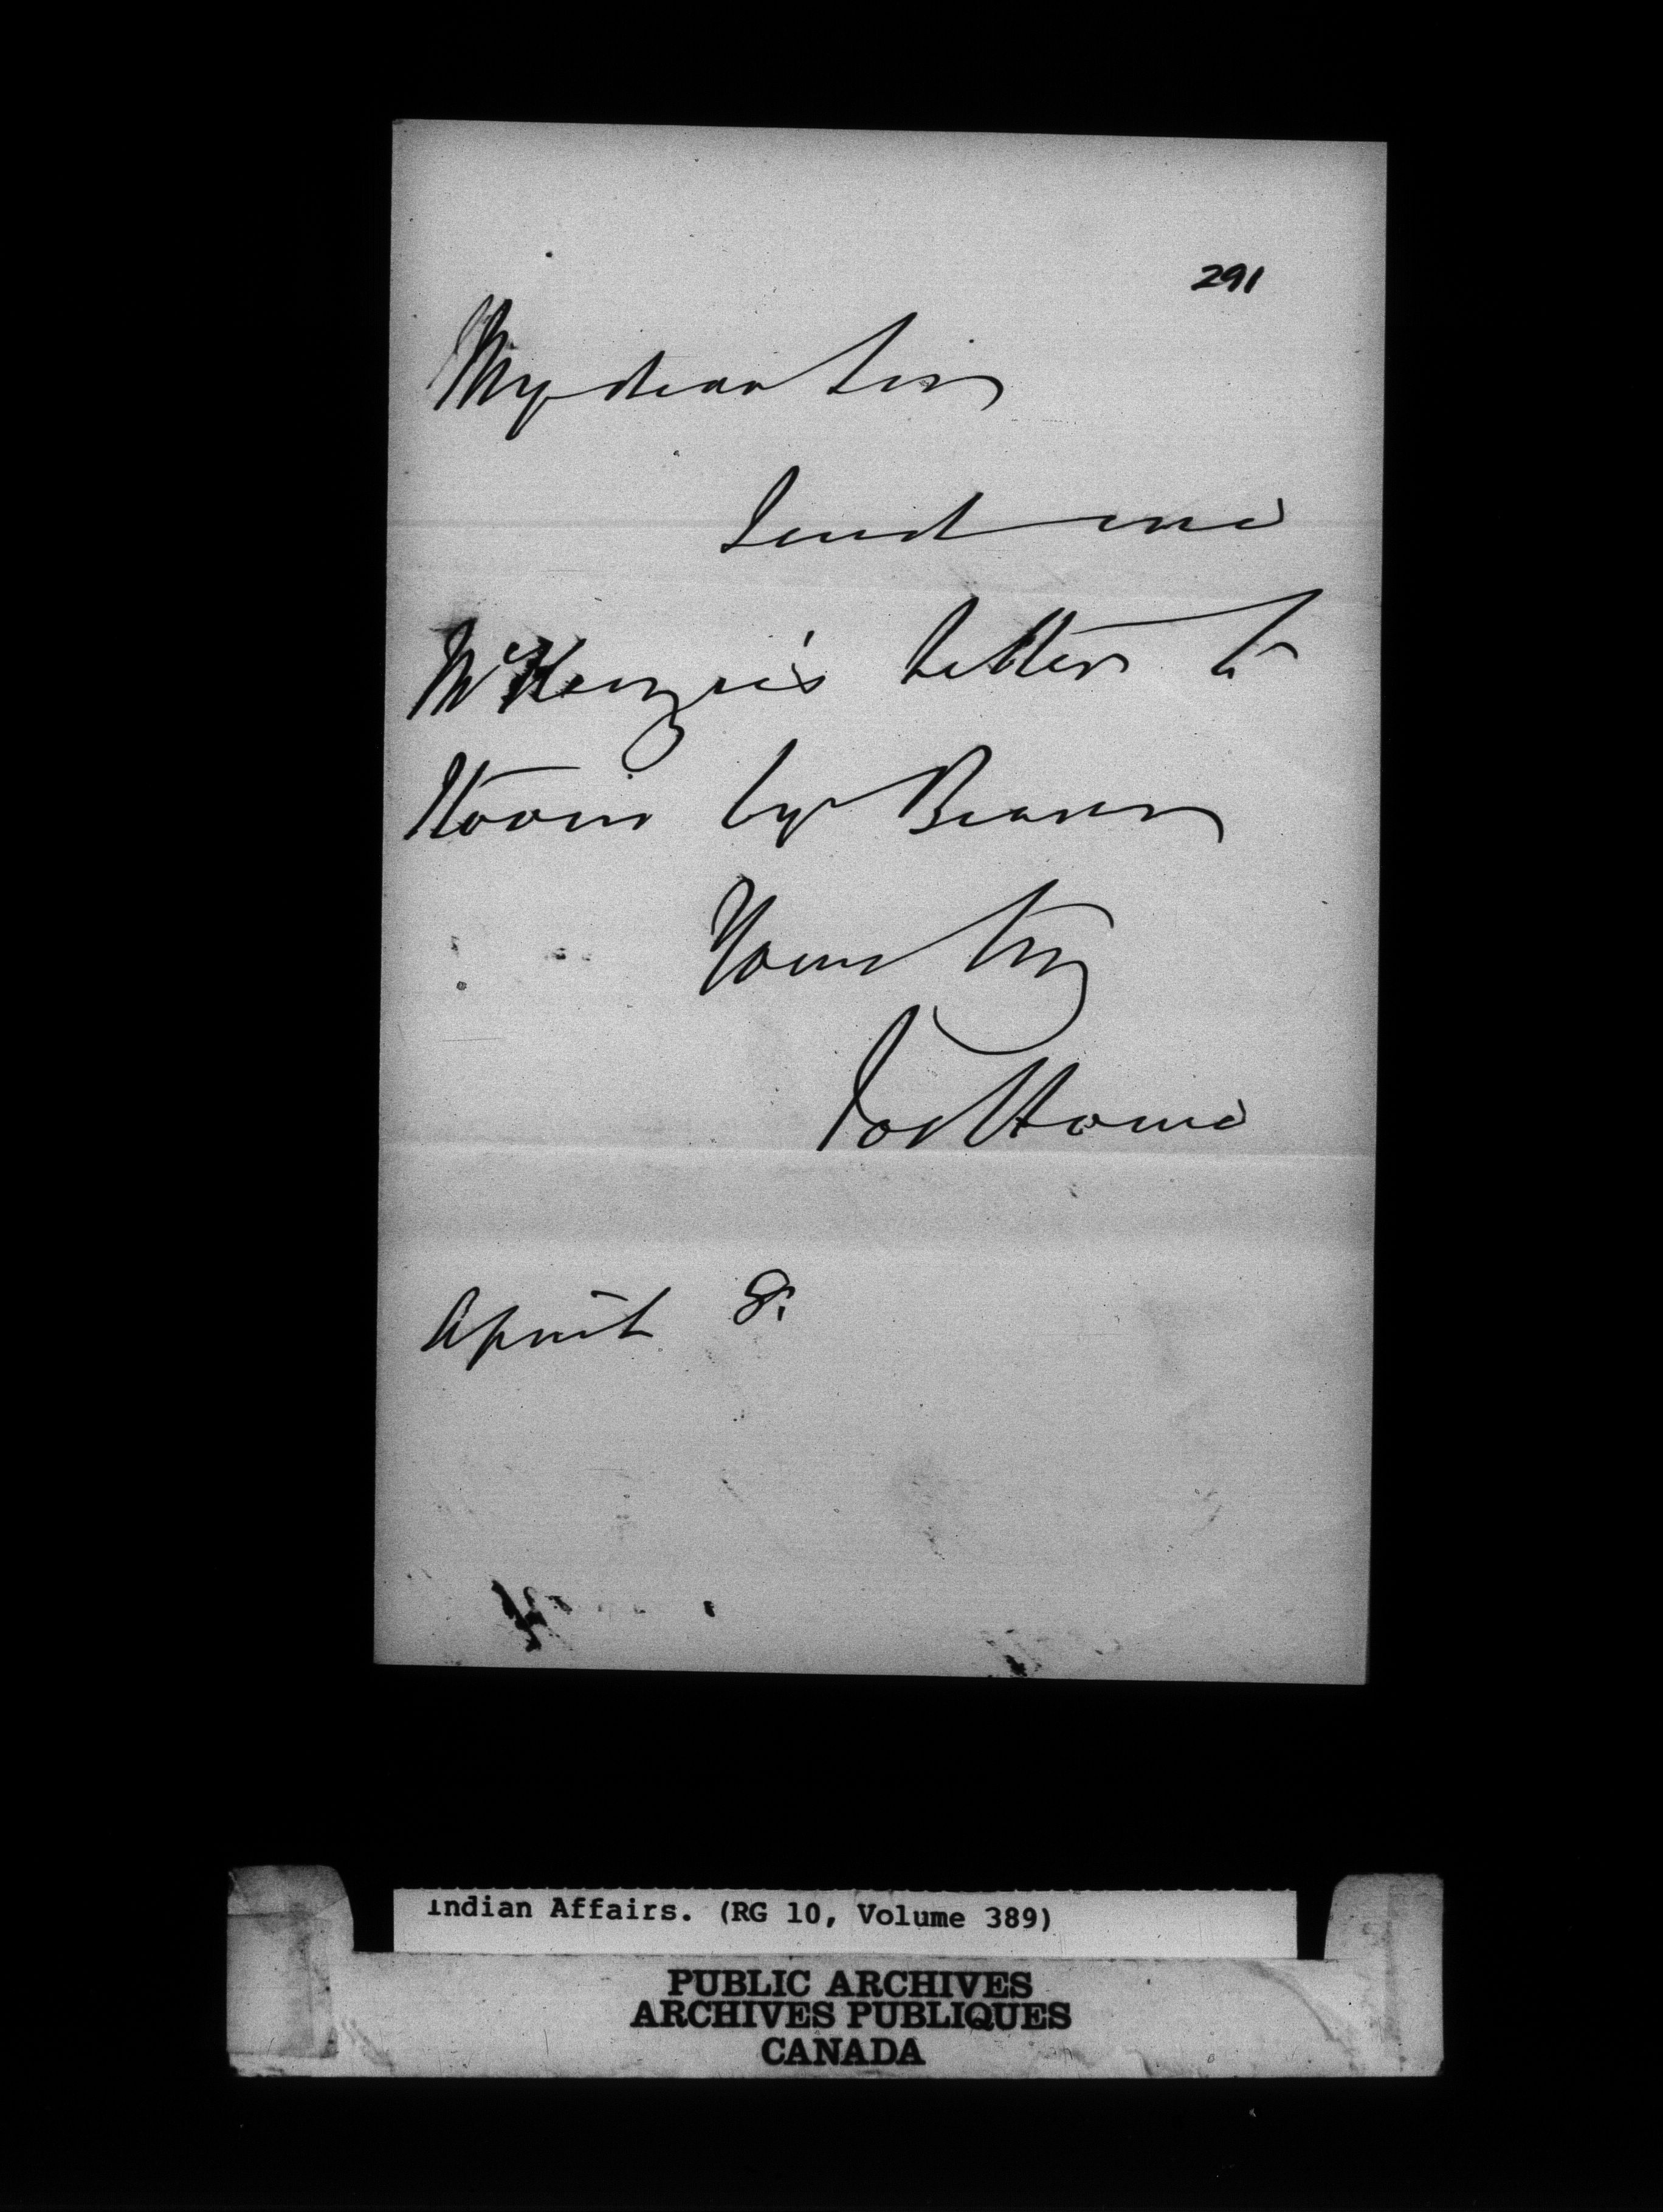 291
My dear Sir
Send me
McKenzie's letter to
by Bearer
Yours try
Jos Howe
April 8.
Indian Affairs. (RG 10, Volume 389)
PUBLIC ARCHIVES
ARCHIVES PUBLIQUES
CANADA